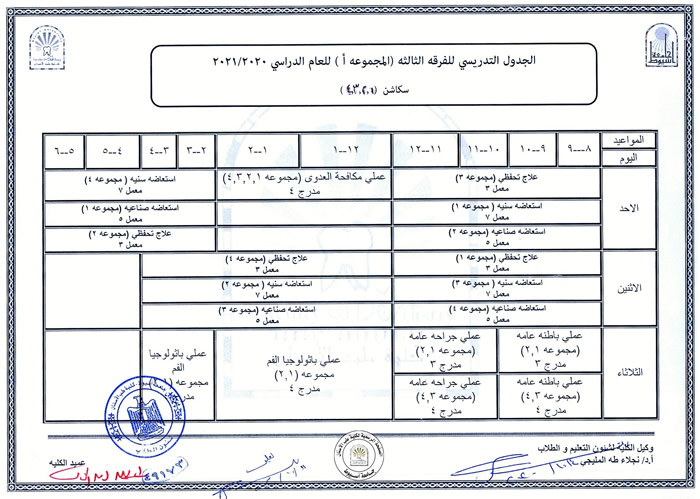 الجدول التدريسي للفرقه الثالثه (المجموعه أ ) للعام الدراسي ٢٠٢١/٢٠٢٠
سكاشن (٤,٣,٢,١)
المواعيد
٨---٩
٩---١٠
١٠---١١
١١---١٢
١٢---١
١---٢
٢---٣
٣---٤
٤---٥
٥---٦
اليوم
الاحد
علاج تحفظي (مجموعه ٣)
معمل ٣
عملي مكافحة العدوى (مجموعه ٤,٣,٢,١)
مدرج ٤
استعاضه سنيه ( مجموعه ٤)
معمل ٧
استعاضه سنيه (مجموعه ١)
معمل ٧
استعاضه صناعيه (مجموعه ١)
معمل ٥
استعاضه صناعيه (مجموعه ٢)
معمل ٥
علاج تحفظي ( مجموعه ٢)
معمل ٣
الاثنين
علاج تحفظي (مجموعه ١)
معمل ٣
علاج تحفظي (مجموعه ٤)
معمل ٣
استعاضه سنيه (مجموعه ٣)
معمل ٧
استعاضه سنيه ( مجموعه ٢)
معمل ٧
استعاضه صناعيه (مجموعه ٤)
معمل ٥
استعاضه صناعيه (مجموعه ٣)
معمل ٥
الثلاثاء
عملي باطنه عامه
(مجموعه ٢,١)
مدرج ٣
عملي جراحه عامه
(مجموعه ٢,١)
مدرج ٣
عملي باثولوجيا الفم
(مجموعه ٢,١)
مدرج ٤
عملي باثولوجيا
الفم
مجموعه
عملي باطنه عامه
(مجموعه ٤,٣)
مدرج ٤
عملي جراحه عامه
(مجموعه ٤,٣)
مدرج ٤
وكيل الكليه لشئون التعليم و الطلاب
أ.د/ نجلاء طه المليجي
عميد الكليه